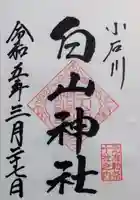 小石川
白山神社
令和五年三月二十七日